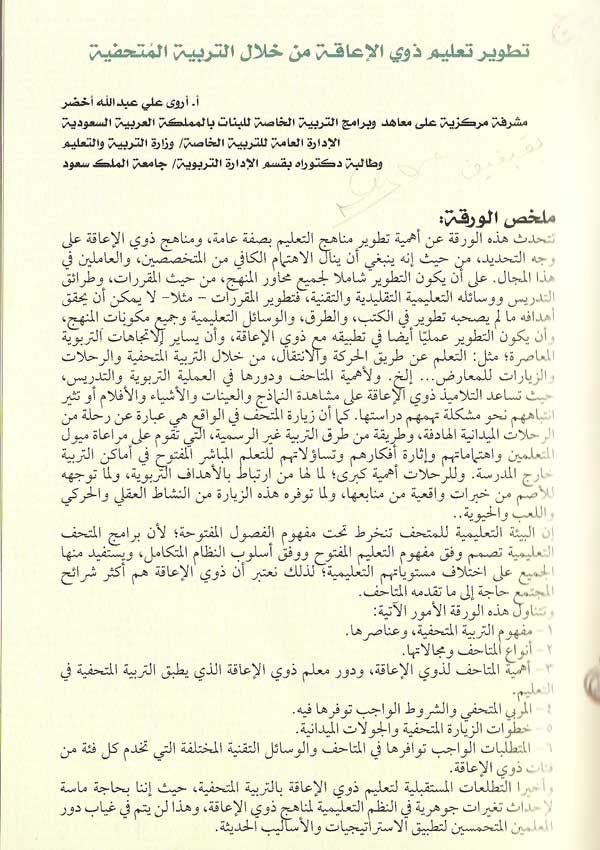 تطوير تعليم ذوي الإعاقة من خلال التربية المُتحفية
أ. أروى علي عبدالله أخضر
مشرفة مركزية على معاهد وبرامج التربية الخاصة للبنات بالمملكة العربية السعودية
الإدارة العامة للتربية الخاصة/ وزارة التربية والتعليم
وطالبة دكتوراه بقسم الإدارة التربوية/ جامعة الملك سعود
ملخص الورقة:
تتحدث هذه الورقة عن أهمية تطوير مناهج التعليم بصفة عامة، ومناهج ذوي الإعاقة على
وجه التحديد، من حيث إنه ينبغي أن ينال الاهتمام الكافي من المتخصصين، والعاملين في
هذا المجال. على أن يكون التطوير شاملا لجميع محاور المنهج، من حيث المقررات، وطرائق
التدريس ووسائله التعليمية التقليدية والتقنية، فتطوير المقررات – مثلا– لا يمكن أن يحقق
أهدافه ما لم يصحبه تطوير في الكتب، والطرق، والوسائل التعليمية وجميع مكونات المنهج،
وأن يكون التطوير عمليًا أيضا في تطبيقه مع ذوي الإعاقة، وأن يساير الاتجاهات التربوية
المعاصرة؛ مثل: التعلم عن طريق الحركة والانتقال، من خلال التربية المتحفية والرحلات
والزيارات للمعارض... إلخ. ولأهمية المتاحف ودورها في العملية التربوية والتدريس،
حيث تساعد التلاميذ ذوي الإعاقة على مشاهدة النماذج والعينات والأشياء والأفلام أو تثير
انتباههم نحو مشكلة تهمهم دراستها. كما أن زيارة المتحف في الواقع هي عبارة عن رحلة من
الرحلات الميدانية الهادفة، وطريقة من طرق التربية غير الرسمية، التي تقوم على مراعاة ميول
المتعلمين واهتماماتهم وإثارة أفكارهم وتساؤلاتهم للتعلم المباشر المفتوح في أماكن التربية
خارج المدرسة. وللرحلات أهمية كبرى؛ لما لها من ارتباط بالأهداف التربوية، ولما توجهه
للأصم من خبرات واقعية من منابعها، ولما توفره هذه الزيارة من النشاط العقلي والحركي
واللعب والحيوية..
إن البيئة التعليمية للمتحف تنخرط تحت مفهوم الفصول المفتوحة؛ لأن برامج المتحف
التعليمية تصمم وفق مفهوم التعليم المفتوح ووفق أسلوب النظام المتكامل، ويستفيد منها
الجميع على اختلاف مستوياتهم التعليمية؛ لذلك نعتبر أن ذوي الإعاقة هم أكثر شرائح
المجتمع حاجة إلى ما تقدمه المتاحف.
وتتناول هذه الورقة الأمور الآتية:
١ – مفهوم التربية المتحفية، وعناصرها.
٢ – أنواع المتاحف ومجالاتها.
٣ – أهمية المتاحف لذوي الإعاقة، ودور معلم ذوي الإعاقة الذي يطبق التربية المتحفية في
التعليم.
٤ – المربي المتحفي والشروط الواجب توفرها فيه.
٥ – خطوات الزيارة المتحفية والجولات الميدانية.
٦ – المتطلبات الواجب توافرها في المتاحف والوسائل التقنية المختلفة التي تخدم كل فئة من
فئات ذوي الإعاقة.
وأخيرا التطلعات المستقبلية لتعليم ذوي الإعاقة بالتربية المتحفية، حيث إننا بحاجة ماسة
لإحداث تغيرات جوهرية في النظم التعليمية لمناهج ذوي الإعاقة، وهذا لن يتم في غياب دور
المعلمين المتحمسين لتطبيق الاستراتيجيات والأساليب الحديثة.